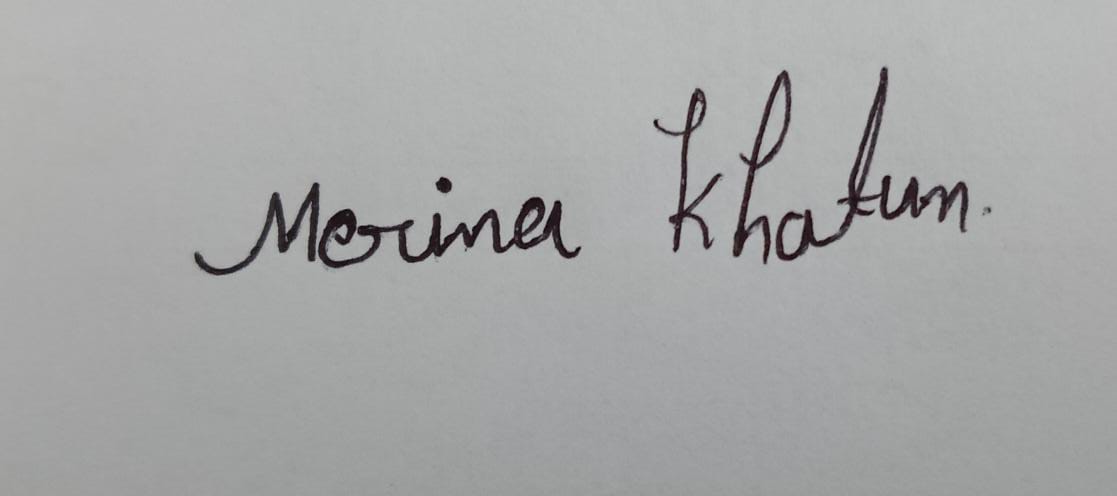 Merina Khatun.